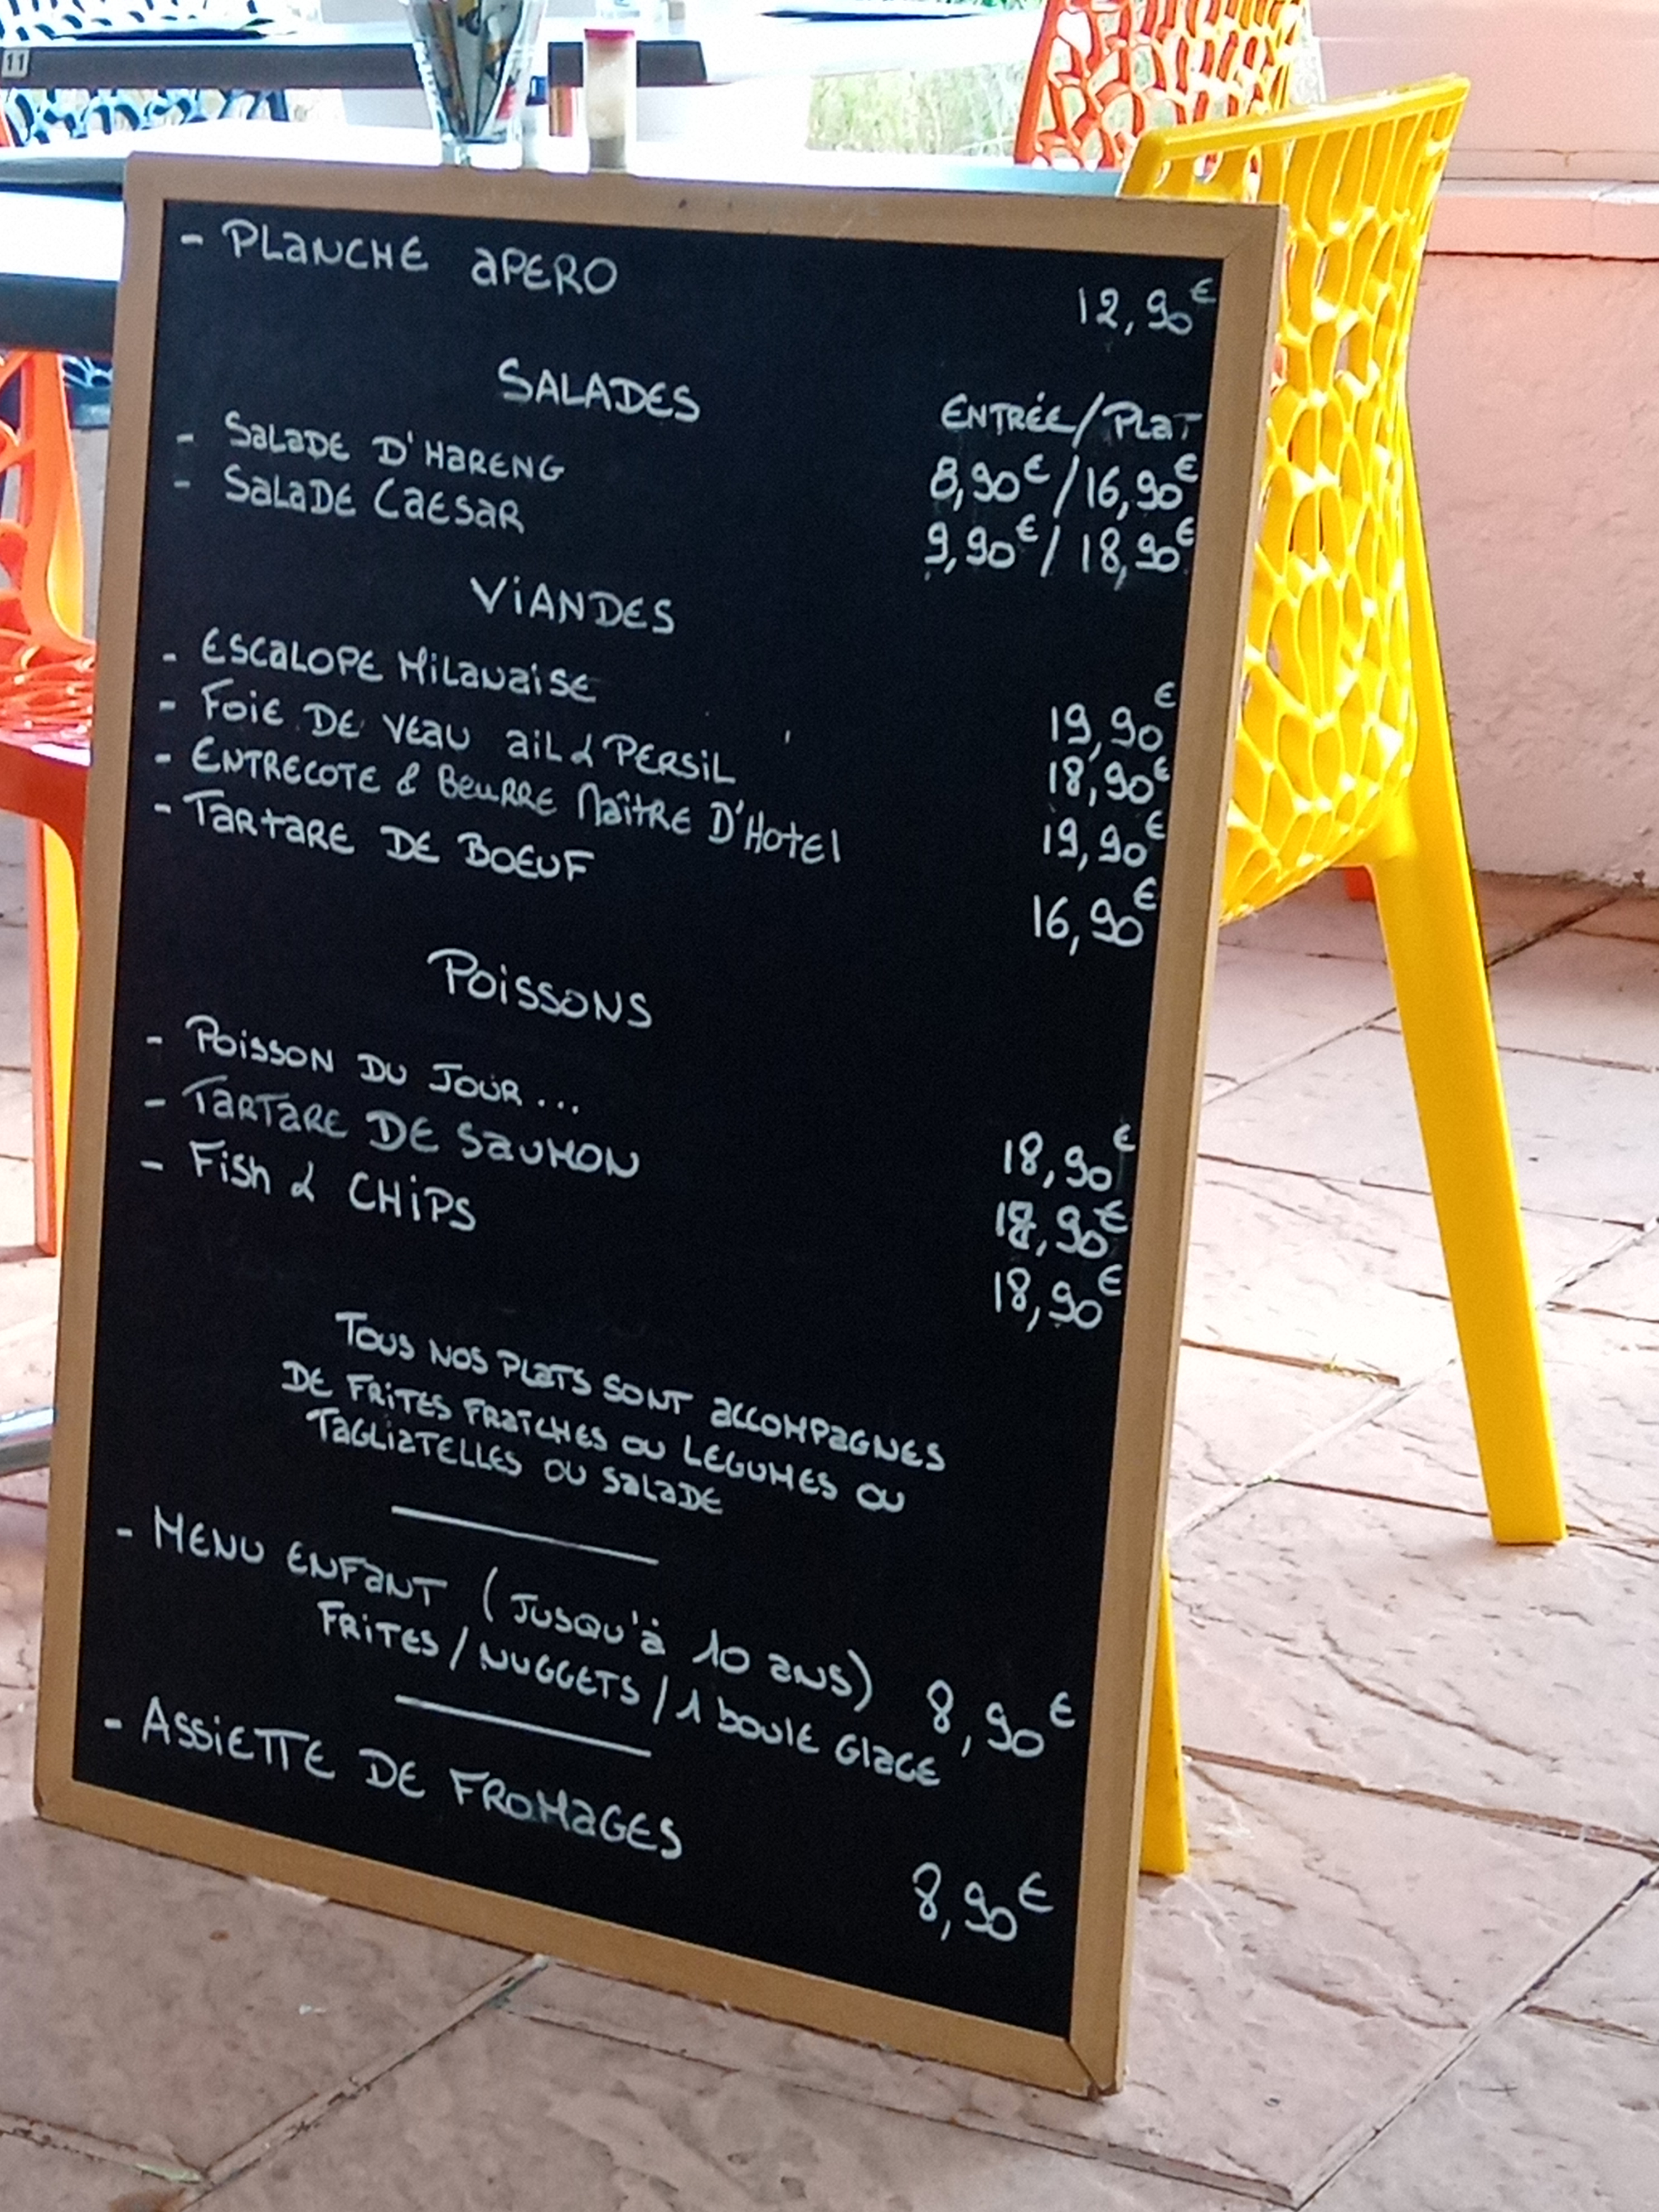 11
- PLANCHE APERO 12,90€
SALADES ENTRÉE/PLAT
- SALADE D'HARENG 8,90€/16,90€
- SALADE CAESAR 9,90€/18,90€
VIANDES
- ESCALOPE MILANAISE 19,90€
- FOIE DE VEAU AIL & PERSIL 18,90€
- ENTRECOTE & BEURRE MAÎTRE D'HOTEL 19,90€
- TARTARE DE BOEUF 16,90€
POISSONS
- POISSON DU JOUR... 18,90€
- TARTARE DE SAUMON 18,90€
- FISH & CHIPS 18,90€
TOUS NOS PLATS SONT ACCOMPAGNES
DE FRITES FRAÎCHES OU LEGUMES OU
TAGLIATELLES OU SALADE
- MENU ENFANT (JUSQU'À 10 ANS) 8,90€
FRITES/NUGGETS/1 BOULE GLACE
- ASSIETTE DE FROMAGES 8,90€